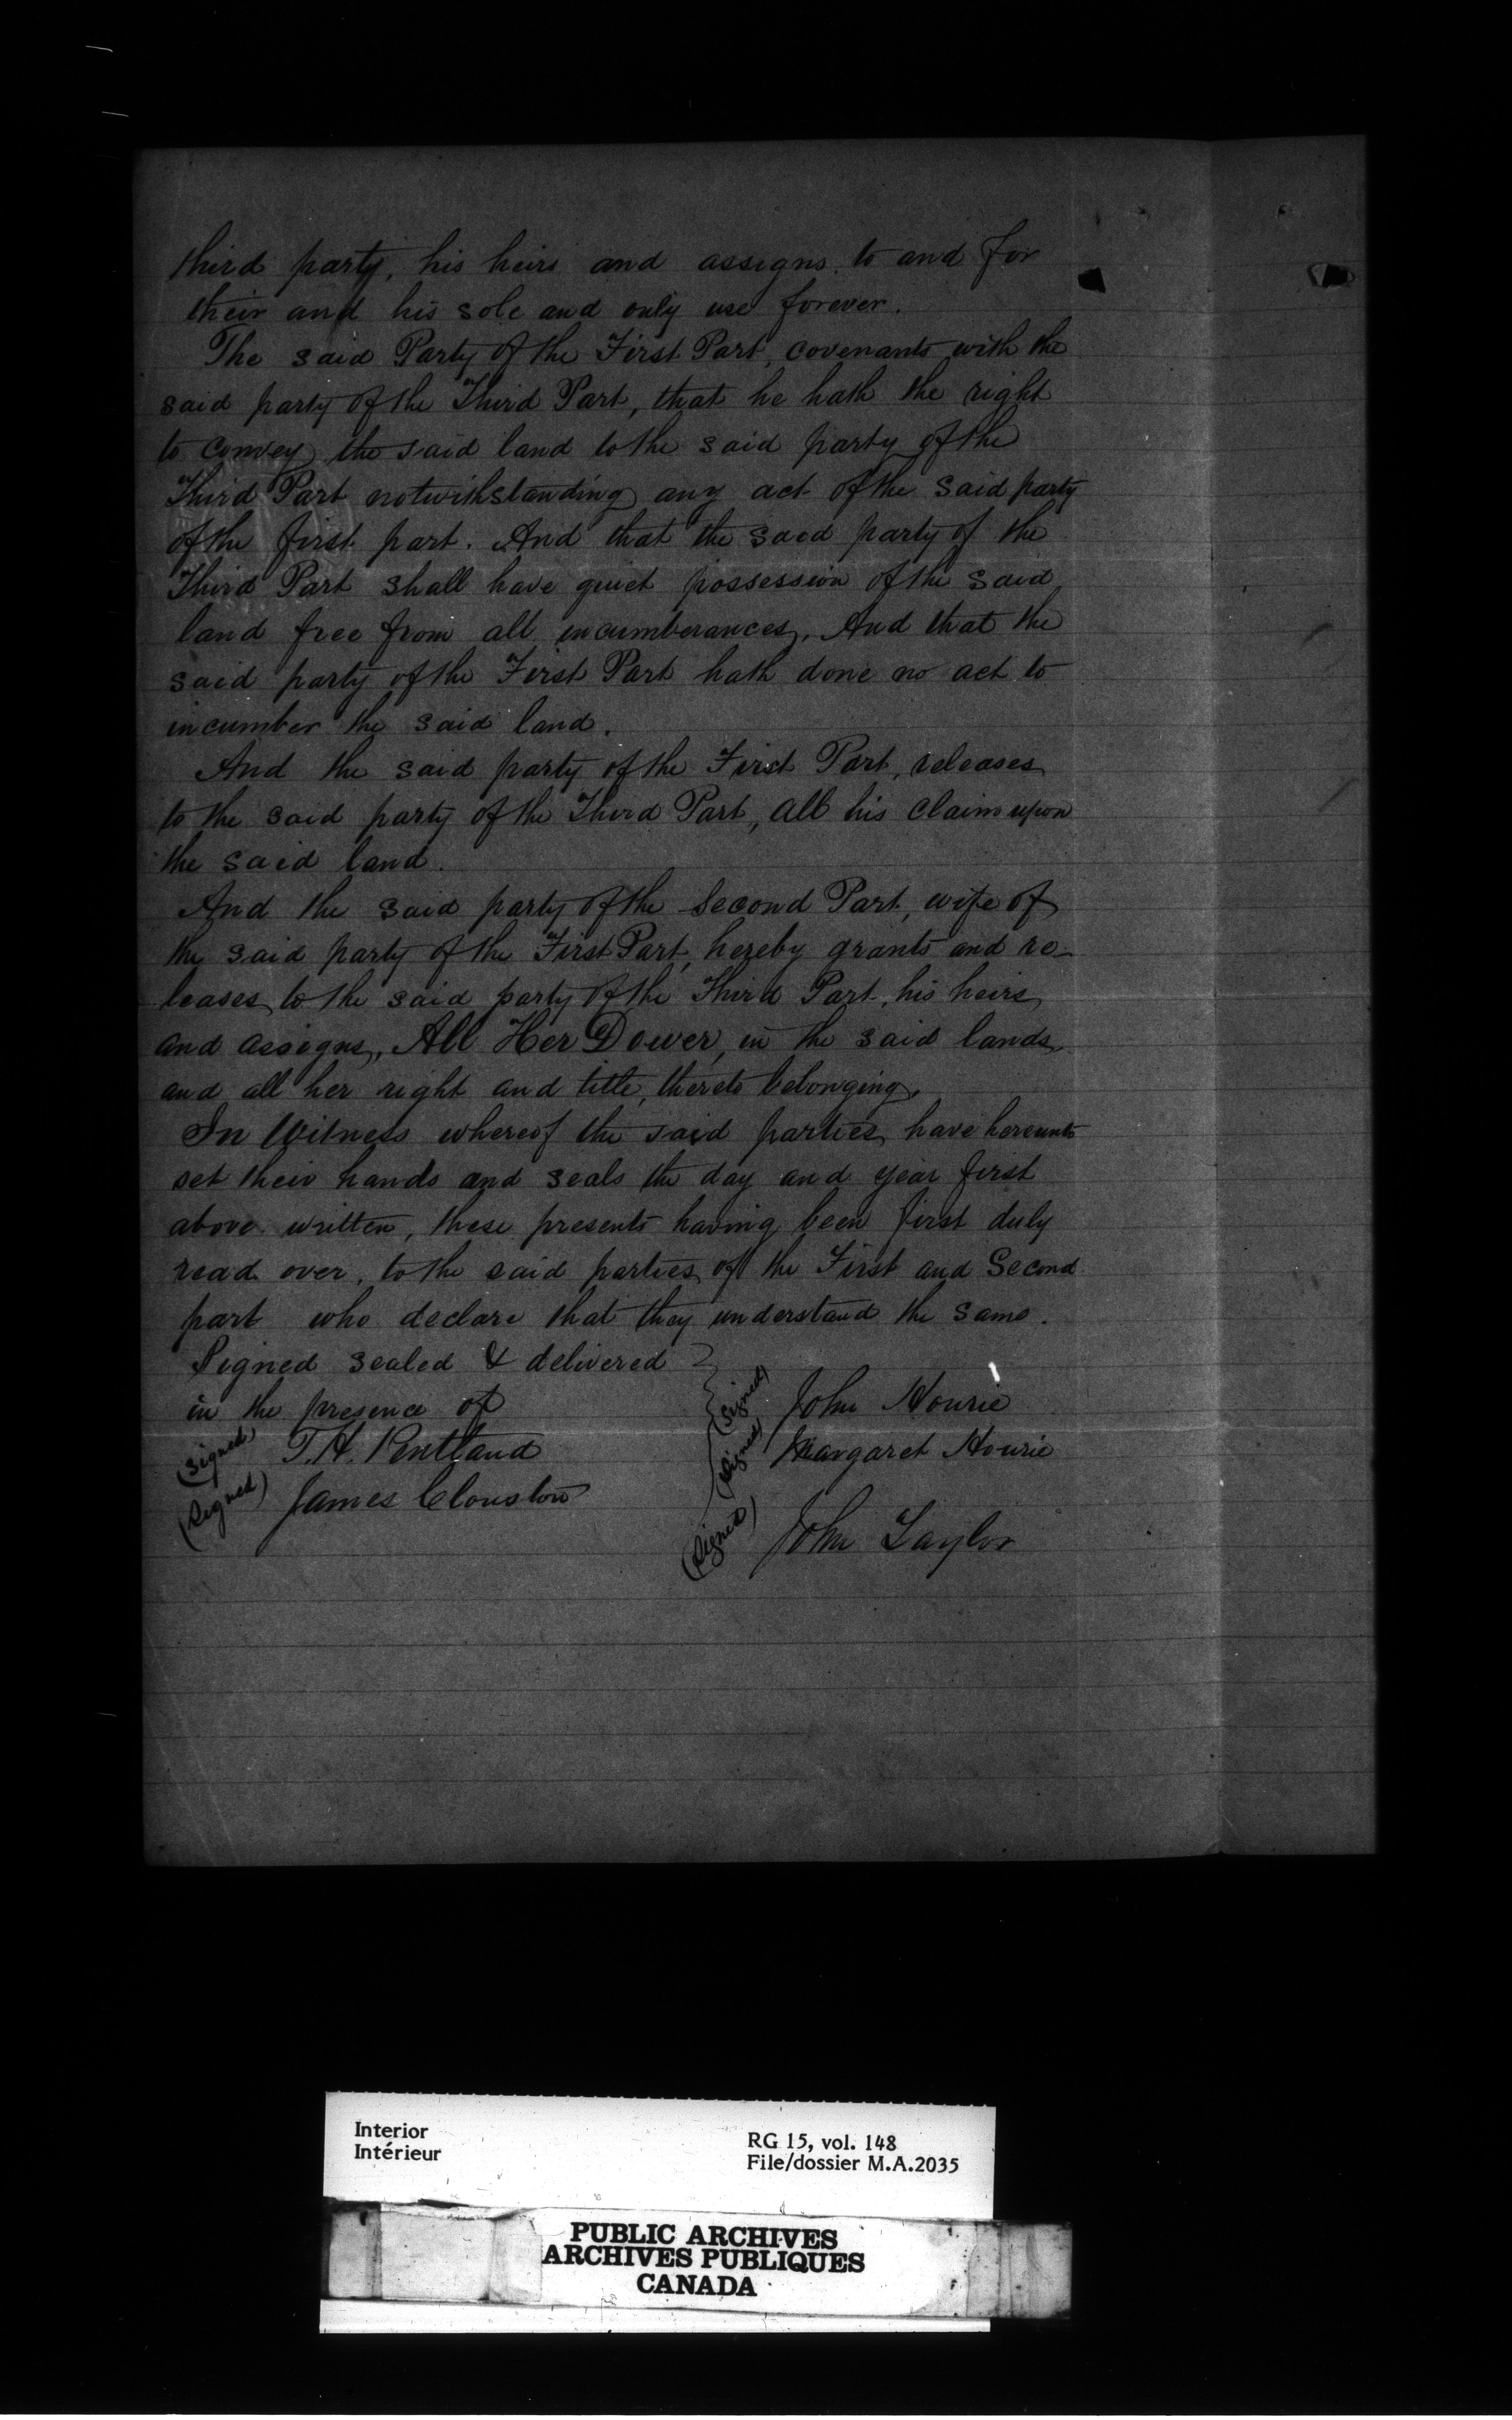 third party, his heirs and assigns to and for
their and his sole and only use forever.
The said Party of the First Part, covenants with the
said party of the Third Part, that he hath the right
to convey the said land to the said party of the
Third Part notwithstanding any act of the said party
of the first part. And that the said party of the
Third Part shall have quiet possession of the said
land free from all incumberances. And that the
said party of the First Part hath done no act to
incumber the said land.
And the said party of the First Part, releases
to the said party of the Third Part, all his claim upon
the said land.
And the said party of the Second Part, wife of
the said party of the First Part, hereby grants and re-
leases to the said party of the Third Part, his heirs
and assigns, All Her Dower, in the said lands,
and all her right and title, thereto belonging.
In Witness whereof the said parties have hereunto
set their hands and seals the day and year first
above written, these presents having been first duly
read over, to the said parties of the First and Second
part who declare that they understand the same.
Signed sealed & delivered
in the presence of
(Signed) T.H. Pentland
(Signed) James Clouston
(Signed) John Hourie
(Signed) Margaret Hourie
(Signed) John Taylor
Interior
Intérieur
RG 15, vol. 148
File/dossier M.A.2035
PUBLIC ARCHIVES
ARCHIVES PUBLIQUES
CANADA